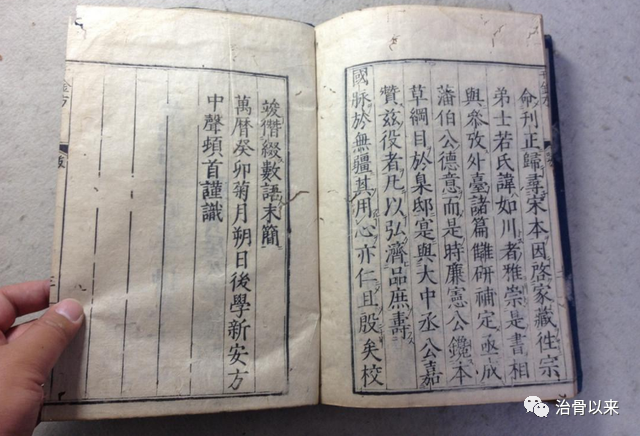 命刊正歸尋宋本因啓家藏徃宗
弟士若氏諱如川者雅崇是書相
與叅攷外臺諸篇讎研補定亟成
藩伯公德意而是時廉憲公鑱本
草綱目於臬邸寔與大中丞公嘉
贊兹役者凡以弘濟品庶壽
國脉於無疆其用心亦仁且殷矣校
竣僭綴數語末簡
萬曆癸卯菊月朔日後學新安方
中聲頓首謹識
治骨以来